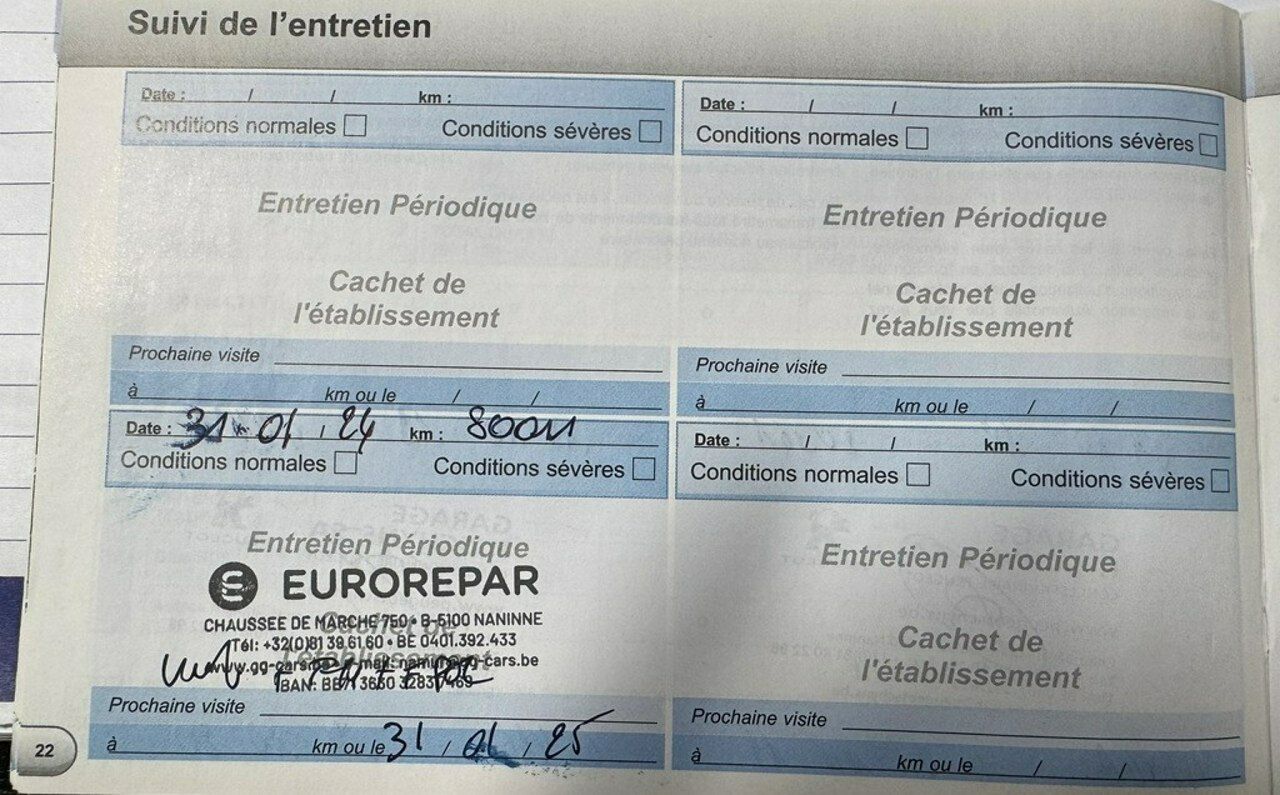 Suivi de l'entretien
Date : / / km :
Conditions normales Conditions sévères
Entretien Périodique
Cachet de
l'établissement
Prochaine visite
à km ou le / /
Date : / / km :
Conditions normales Conditions sévères
Entretien Périodique
Cachet de
l'établissement
Prochaine visite
à km ou le / /
Date : 31 01 / 24 km :
Conditions normales Conditions sévères
Entretien Périodique
EUROREPAR
CHAUSSEE DE MARCHE 750 • B-5100 NANINNE
Cachet de
Tél: +32(0)81 39 61 60 • BE 0401.392.433
l'établissement
Prochaine visite
à km ou le 31 / 01 / 25
Date : / / km :
Conditions normales Conditions sévères
Entretien Périodique
Cachet de
l'établissement
Prochaine visite
à km ou le / /
22